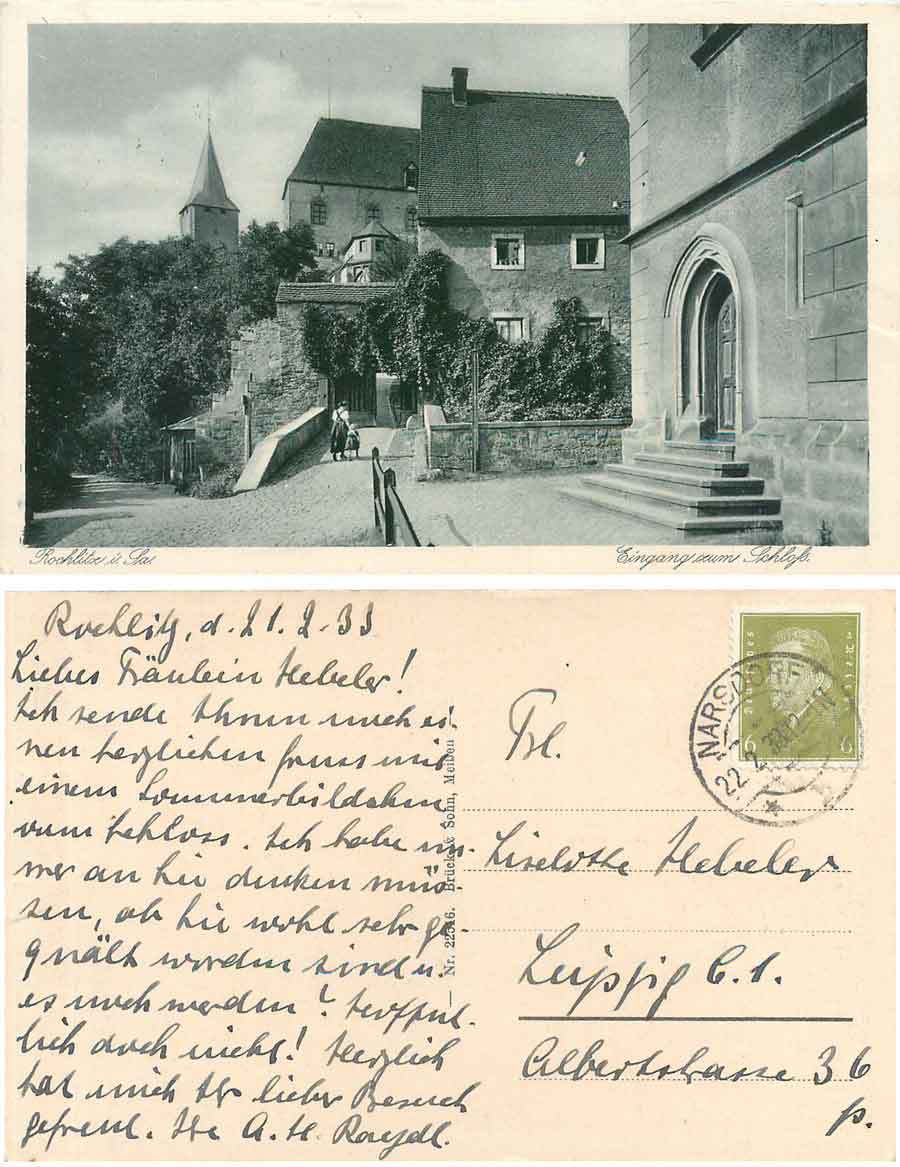 Rochlitz i. Sa.
Eingang zum Schloß.
Rochlitz, d. 21.2.33
Liebes Fräulein Hebeler!
Ich sende Ihnen noch ei-
nen herzlichen Gruss mit
einem Sommerbildchen
vom Schloss. Ich habe im-
mer an Sie denken müs-
sen, ob Sie wohl sehr ge-
quält worden sind u.
es noch werden? Hoffent-
lich doch nicht! Herzlich
hat mich Ihr lieber Besuch
gefreut. Ihr A. H.
Nr. 22516. Brück & Sohn, Meißen
Deutsches Reich
6 6
NARSDORF
22.2.33
Frl.
Liselotte Hebeler
Leipzig C.1.
Albertstrasse 36
p.